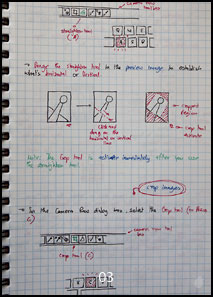 camera raw tool
straightening tool
(A)
→ Drag the straighten tool in the preview image to establish
what's horizontal or vertical.
click and
drag on the
horizontal or vertical
line
cropped
region
crop tool
Note: The Crop tool is activate immediately after you use
the straighten tool.
crop images
→ In the Camera Raw dialog box, select the Crop tool (or Press
C)
camera raw tool
crop tool (C)
03